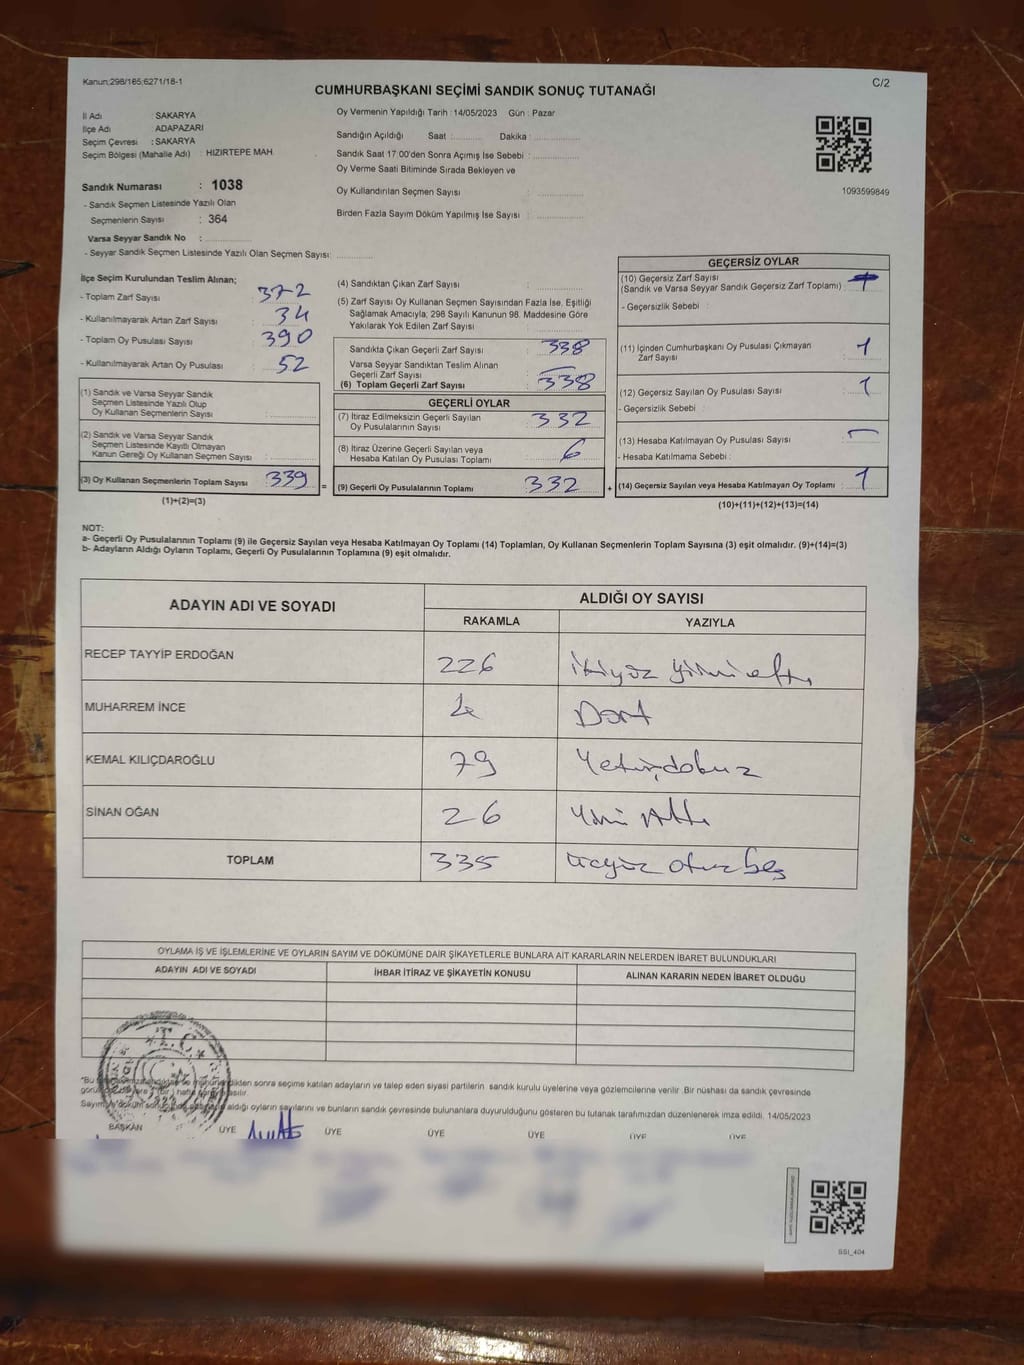 Kanun:298/165;6271/18-1
C/2
CUMHURBAŞKANI SEÇİMİ SANDIK SONUÇ TUTANAĞI
İl Adı : SAKARYA
İlçe Adı ADAPAZARI
Seçim Çevresi : SAKARYA
Seçim Bölgesi (Mahalle Adı) : HIZIRTEPE MAH.
Sandık Numarası : 1038
- Sandık Seçmen Listesinde Yazılı Olan
Seçmenlerin Sayısı : 364
Varsa Seyyar Sandık No :
- Seyyar Sandık Seçmen Listesinde Yazılı Olan Seçmen Sayısı:
Oy Vermenin Yapıldığı Tarih : 14/05/2023 Gün : Pazar
Sandığın Açıldığı Saat : Dakika :
Sandık Saat 17:00'den Sonra Açımış İse Sebebi :
Oy Verme Saati Bitiminde Sırada Bekleyen ve
Oy Kullandırılan Seçmen Sayısı :
Birden Fazla Sayım Döküm Yapılmış İse Sayısı :
1093599849
İlçe Seçim Kurulundan Teslim Alınan;
- Toplam Zarf Sayısı : 372
- Kullanılmayarak Artan Zarf Sayısı : 34
- Toplam Oy Pusulası Sayısı : 390
- Kullanılmayarak Artan Oy Pusulası : 52
(1) Sandık ve Varsa Seyyar Sandık
Seçmen Listesinde Yazılı Olup
Oy Kullanan Seçmenlerin Sayısı :
(2) Sandık ve Varsa Seyyar Sandık
Seçmen Listesinde Kayıtlı Olmayan
Kanun Gereği Oy Kullanan Seçmen Sayısı :
(3) Oy Kullanan Seçmenlerin Toplam Sayısı : 339 =
(1)+(2)=(3)
(4) Sandıktan Çıkan Zarf Sayısı :
(5) Zarf Sayısı Oy Kullanan Seçmen Sayısından Fazla İse, Eşitliği
Sağlamak Amacıyla, 298 Sayılı Kanunun 98. Maddesine Göre
Yakılarak Yok Edilen Zarf Sayısı :
Sandıkta Çıkan Geçerli Zarf Sayısı : 338
Varsa Seyyar Sandıktan Teslim Alınan
Geçerli Zarf Sayısı :
(6) Toplam Geçerli Zarf Sayısı : 338
GEÇERLİ OYLAR
(7) İtiraz Edilmeksizin Geçerli Sayılan
Oy Pusulalarının Sayısı : 332
(8) İtiraz Üzerine Geçerli Sayılan veya
Hesaba Katılan Oy Pusulası Toplamı : 6
(9) Geçerli Oy Pusulalarının Toplamı : 332 +
GEÇERSİZ OYLAR
(10) Geçersiz Zarf Sayısı
(Sandık ve Varsa Seyyar Sandık Geçersiz Zarf Toplamı) :
- Geçersizlik Sebebi :
(11) İçinden Cumhurbaşkanı Oy Pusulası Çıkmayan
Zarf Sayısı : 1
(12) Geçersiz Sayılan Oy Pusulası Sayısı : 1
- Geçersizlik Sebebi :
(13) Hesaba Katılmayan Oy Pusulası Sayısı : -
- Hesaba Katılmama Sebebi :
(14) Geçersiz Sayılan veya Hesaba Katılmayan Oy Toplamı : 1
(10)+(11)+(12)+(13)=(14)
NOT:
a- Geçerli Oy Pusulalarının Toplamı (9) ile Geçersiz Sayılan veya Hesaba Katılmayan Oy Toplamı (14) Toplamları, Oy Kullanan Seçmenlerin Toplam Sayısına (3) eşit olmalıdır. (9)+(14)=(3)
b- Adayların Aldığı Oyların Toplamı, Geçerli Oy Pusulalarının Toplamına (9) eşit olmalıdır.
ADAYIN ADI VE SOYADI
ALDIĞI OY SAYISI
RAKAMLA YAZIYLA
RECEP TAYYİP ERDOĞAN 226 ikiyüz yirmi altı
MUHARREM İNCE 4 Dört
KEMAL KILIÇDAROĞLU 79 Yetmişdokuz
SİNAN OĞAN 26 Yirmi Altı
TOPLAM 335 üçyüz otuz beş
OYLAMA İŞ VE İŞLEMLERİNE VE OYLARIN SAYIM VE DÖKÜMÜNE DAİR ŞİKAYETLERLE BUNLARA AİT KARARLARIN NELERDEN İBARET BULUNDUKLARI
ADAYIN ADI VE SOYADI İHBAR İTİRAZ VE ŞİKAYETİN KONUSU ALINAN KARARIN NEDEN İBARET OLDUĞU
T.C.
sonra seçime katılan adayların ve talep eden siyasi partilerin sandık kurulu üyelerine veya gözlemcilerine verilir .Bir nüshası da sandık çevresinde
aldığı oyların sayılarını ve bunların sandık çevresinde bulunanlara duyurulduğunu gösteren bu tutanak tarafımızdan düzenlenerek imza edildi. 14/05/2023
BAŞKAN ÜYE ÜYE ÜYE ÜYE ÜYE ÜYE
SSI_404